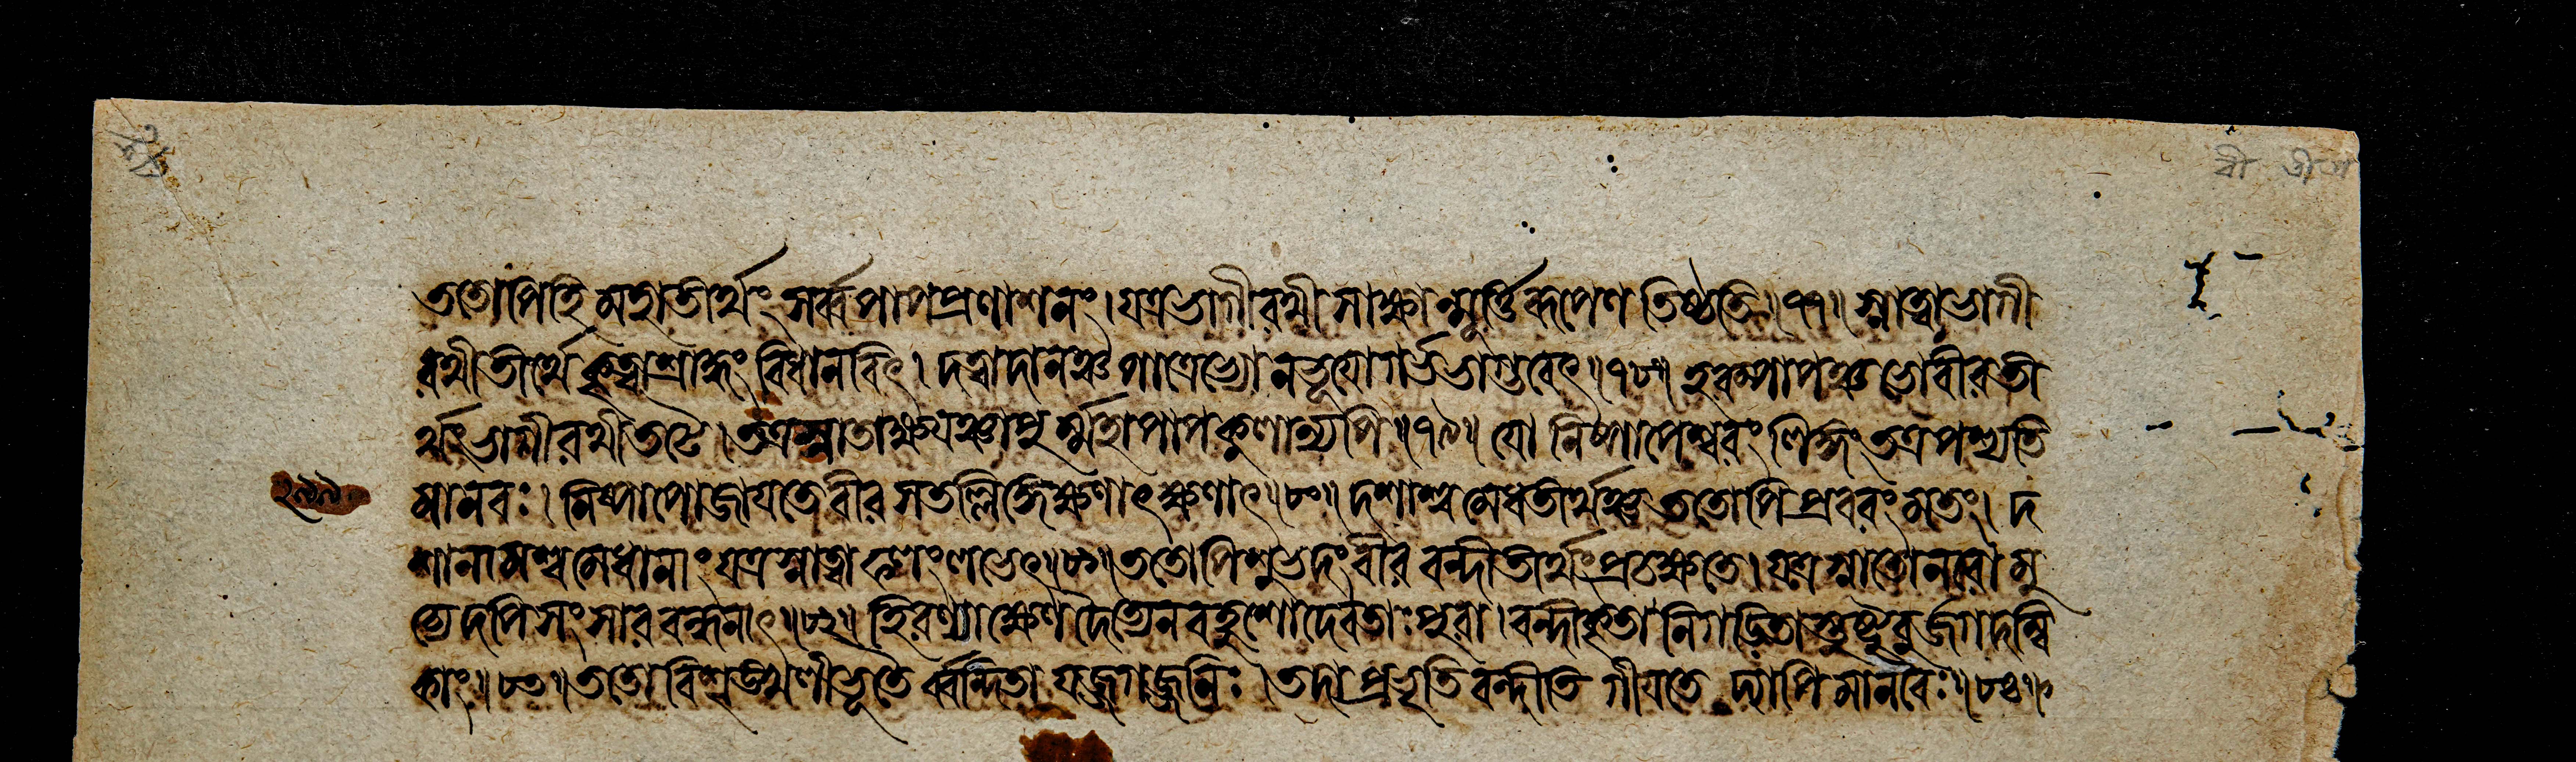 ততোপিহি মহাতীর্থং সর্ব্বপাপপ্রণাশনং।যত্রভাগীরথী সাক্ষান্মূর্ত্তিরূপেণ তিষ্ঠতি॥৭৭॥ স্নাত্বাভাগী
রথীতীর্থে কৃত্বাশ্রাদ্ধং বিধানবিৎ। দত্বাদানঞ্চ পাত্রেভ্যোনভূযোগর্ভভাগ্ভবেৎ॥৭৮॥ হরম্পাপঞ্চ ভোবীরতী
র্থং ভাগীরথীতটে।তত্রস্নাতাক্ষযঞ্চাপু র্ম্মহাপাপকুলান্যপি॥৭৯॥ যো নিষ্পাপেশ্বরং লিঙ্গং তত্রপশ্যতি
২৯৯
মানবঃ। নিষ্পাপোজাযতেবীর সতল্লিঙ্গেক্ষণাৎক্ষণাৎ॥৮০॥ দশাশ্বমেধতীর্থঞ্চ ততোপিপ্রবরং মতং। দ
শানামশ্বমেধানাং যত্রস্নাত্বা ফলং লভেৎ॥৮১॥ততোপিশুভদং বীর বন্দীতীর্থং প্রচক্ষতে। যত্রস্নাতোনরো মু
চ্যেদপিসংসারবন্ধনাৎ॥৮২॥ হিরণ্যাক্ষেণ দৈত্যেনবহুশোদেবতাঃপুরা।বন্দীকৃতা নিগডিতাস্তুষ্টুবুর্জগদম্বি
কাং॥৮৩॥ততোবিশৃঙ্খলীভূতৈ র্ব্বন্দিতা যজ্জগজ্জনিঃ।তদাপ্রভৃতি বন্দীতি গীযতে দ্যাপিমানবৈঃ॥৮৪॥